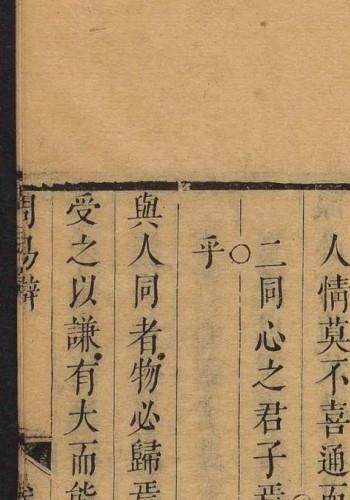 人情莫不喜通而
二同心之君子焉
乎
與人同者物必歸焉
受之以謙有大而能
周易辭